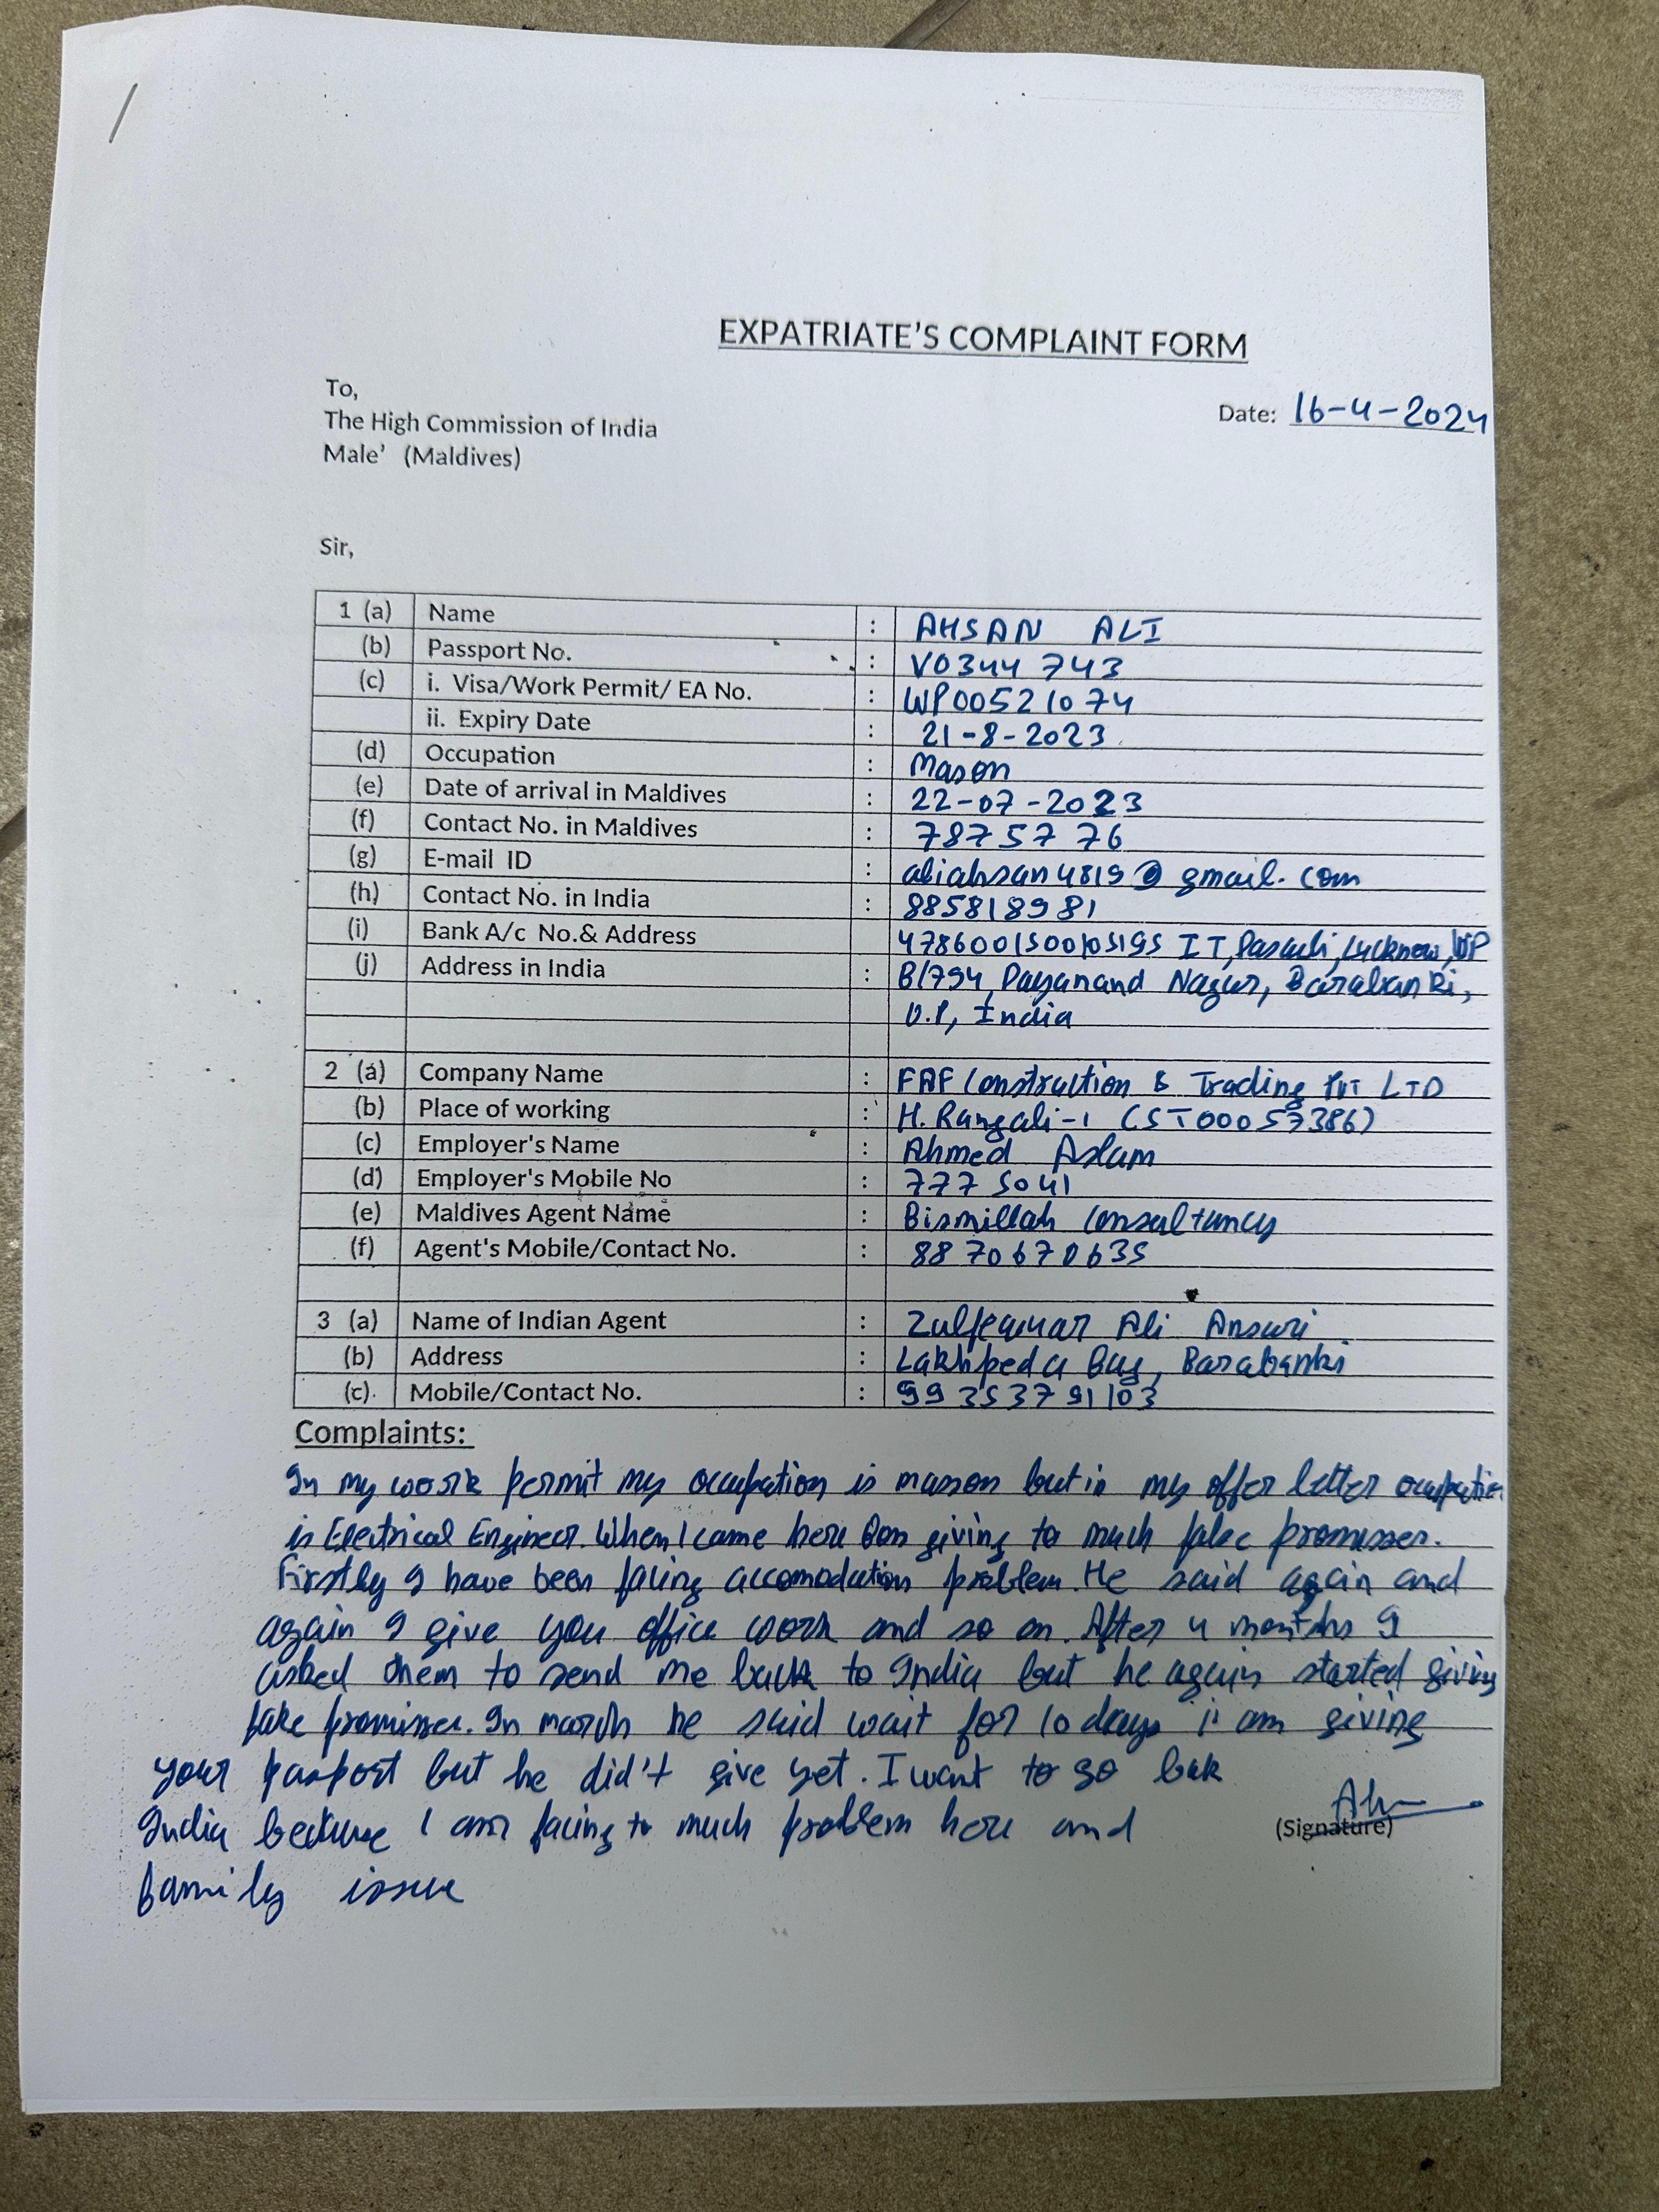 EXPATRIATE'S COMPLAINT FORM
To,
The High Commission of India
Male' (Maldives)
Date: 16-4-2024
Sir,
1 (a) Name : AHSAN ALI
(b) Passport No. : V0344743
(c) i. Visa/Work Permit/ EA No. : WP00521074
ii. Expiry Date : 21-8-2023
(d) Occupation : Mason
(e) Date of arrival in Maldives : 22-07-2023
(f) Contact No. in Maldives : 7875776
(g) E-mail ID : aliahsan4819@gmail.com
(h) Contact No. in India : 885818981
(i) Bank A/c No.& Address 4786001500105195 IT, Lucknow, UP
(j) Address in India : B1794, Dayanand Nagar, Barabanki,
U.P, India
2 (a) Company Name : FAF Construction & Trading Pvt LTD
(b) Place of working : H. Rangali-1 (ST00057386)
(c) Employer's Name : Ahmed Aslam
(d) Employer's Mobile No : 7775041
(e) Maldives Agent Name : Bismillah Consultancy
(f) Agent's Mobile/Contact No. : 8870670635
3 (a) Name of Indian Agent : Ali Ansari
(b) Address : Lakhpeda Bag, Barabanki
(c). Mobile/Contact No. : 99353791103
Complaints:
In my work permit my occupation is mason but in my offer letter occupation
is Electrical Engineer. When I came here giving to much false promisses.
Firstly I have been facing accomodation problem. He said again and
again I give you office work and so on. After 4 months I
asked them to send me back to India but he again started giving
fake promisses. In march he said wait for 10 days i am giving
your pasport but he did't give yet. I want to go bak
India because I am facing to much problem here and
family issue
(Signature)